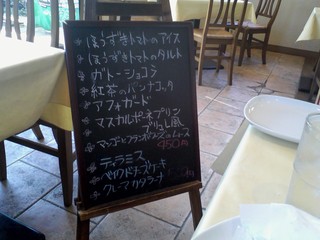 ほうずきトマトのアイス
ほうずきトマトのタルト
ガトーショコラ
紅茶のパンナコッタ
アフォガード
マスカルポーネプリン
ブリュレ風
マンゴーとフランボワーズのムース
450円
ティラミス
ベイクドチーズケーキ
クレーマカタラーナ